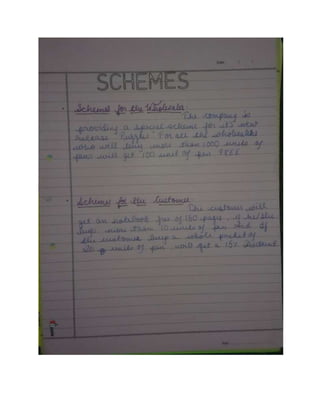 SCHEMES
Schemes for the Wholesale
The company is
providing a special scheme for its new
release Puzzle. For all the wholesalers
who will buy more than 1000 units of
pen will get 100 unit of pen FREE
Scheme for the Customer
The customer will
get an notebook free of 160 pages, if he/she
buys more than 10 units of pen and if
the customer buys a whole packet of
20 units of pen, will get a 15% discount